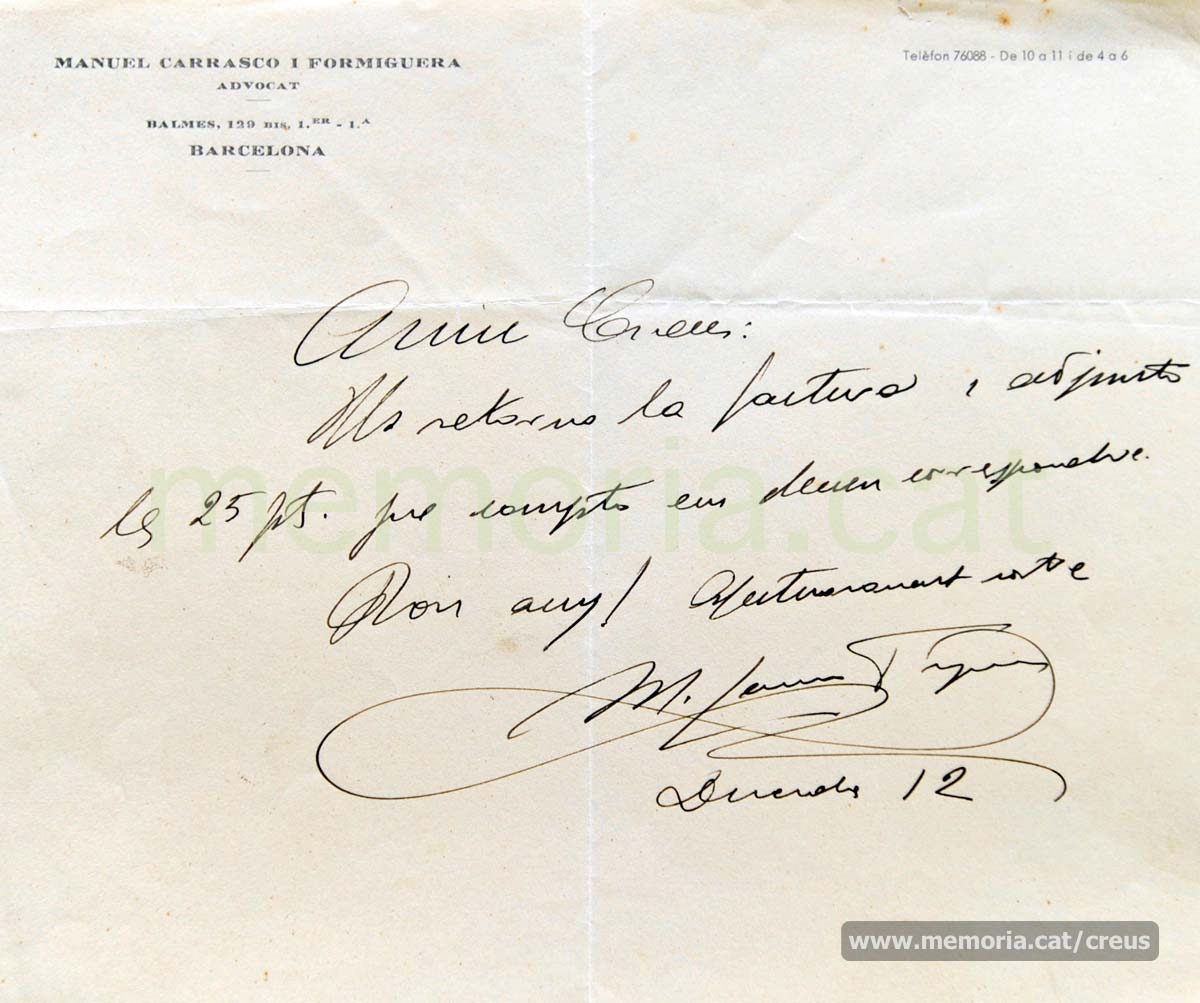 MANUEL CARRASCO I FORMIGUERA
ADVOCAT
BALMES, 129 BIS, 1.ER - 1.A
BARCELONA
Telèfon 76088 - De 10 a 11 i de 4 a 6
Amic Creus:
Us retorno la factura i adjunto
les 25 pts. que compto em deuen correspondre.
Bon any! Afectuosament vostre
M. Carrasco Formiguera
12
memoria.cat
www.memoria.cat/creus